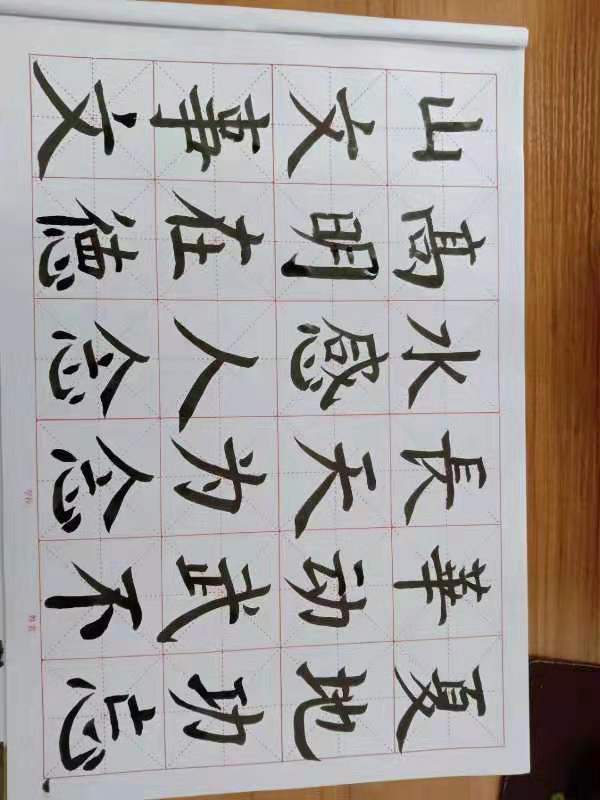 山高水長華夏
文明感天动地
事在人为武功
文德念念不忘